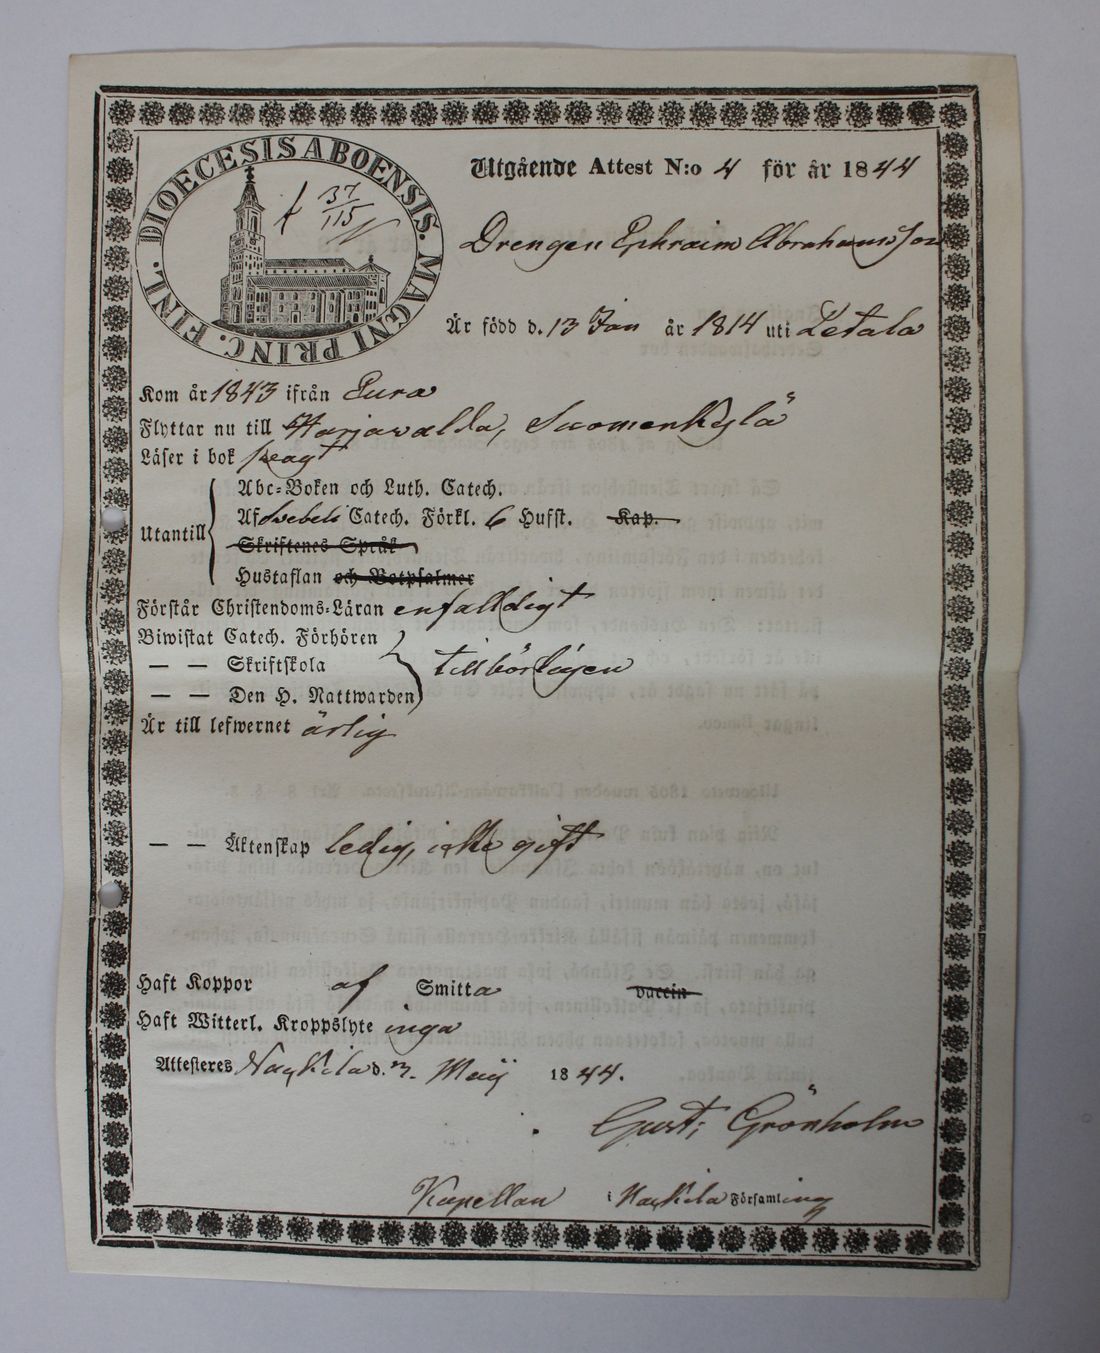 DIOECESIS ABOENSIS. MAGNI PRINC. FINL.
37
115
Utgående Attest N:o 4 för år 1844
Drengen Ephraim Abrahamsson
Är född d. 13 Jan år 1814 uti Letala
Kom år 1843 ifrån Eura
Flyttar nu till Harjavalda, Suomenkylä
Läser i bok svagt
Abc-Boken och Luth. Catech.
Utantill
Afsvebeli Catech. Förkl. 6 Hufst. Kap.
Skriftenes Språk
Hustaflan och Botpsalmer
Förstår Christendoms-Läran enfalldigt
Biwistat Catech. Förhören
— — Skriftskola tillbörligen
— — Den H. Nattwarden
Är till lefwernet ärlig
— — Äktenskap ledig, icke gift
Haft Koppor af Smitta vaccin
Haft Witterl. Kroppslyte inga
Attesteres Nackila d. 3. Maij 1844.
Gust: Grönholm
Kapellan i Nackila Församling